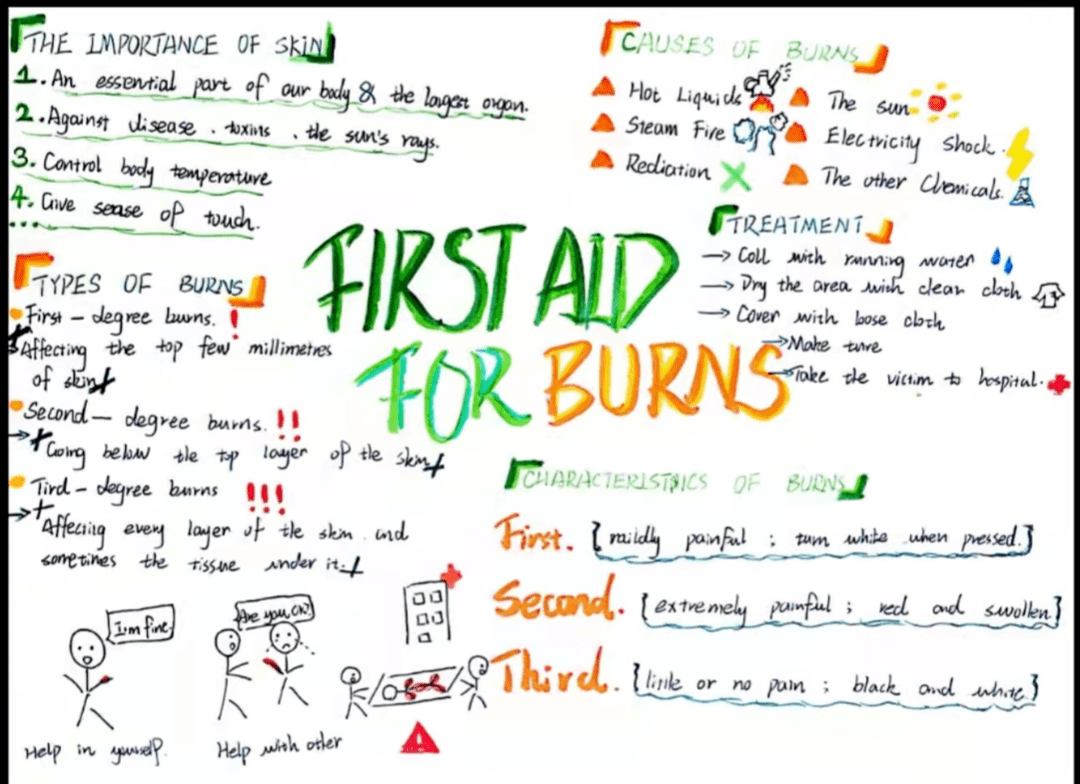 THE IMPORTANCE OF SKIN
1. An essential part of our body & the largest organ.
2. Against disease . toxins . the sun's rays.
3. Control body temperature
4. Give sease of touch.
...
TYPES OF BURNS
First - degree burns. !
Affecting the top few millimetres
of skin
Second - degree burns. !!
Going below the top layer of the skin
Tird - degree burns !!!
Affecting every layer of the skin and
sometimes the tissue under it.
FIRST AID
FOR BURNS
CAUSES OF BURNS
Hot Liquids
The sun
Steam Fire
Electricity Shock.
Rediation
The other Chemicals.
TREATMENT
→ Coll with running water
→ Dry the area with clean cloth
→ Cover with loose cloth
→ Make ture
→ Take the victim to hospital.
CHARACTERISTICS OF BURNS
First. {mildly painful ; turn white when pressed.}
Second. {extremely painful ; red and swollen}
Third. {little or no pain ; black and white.}
I'm fine.
Are you OK?
Help in yourself.
Help with other